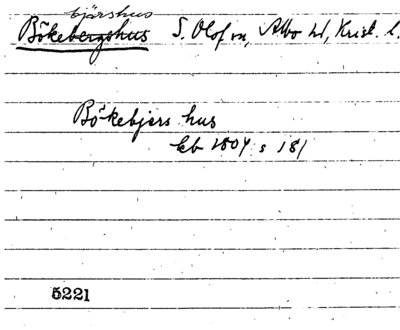 bjärshus
Bökebergshus S. Olof sn, Albo hd, Krist. l.
Bökebjers hus
kb 1804 s 181
5221